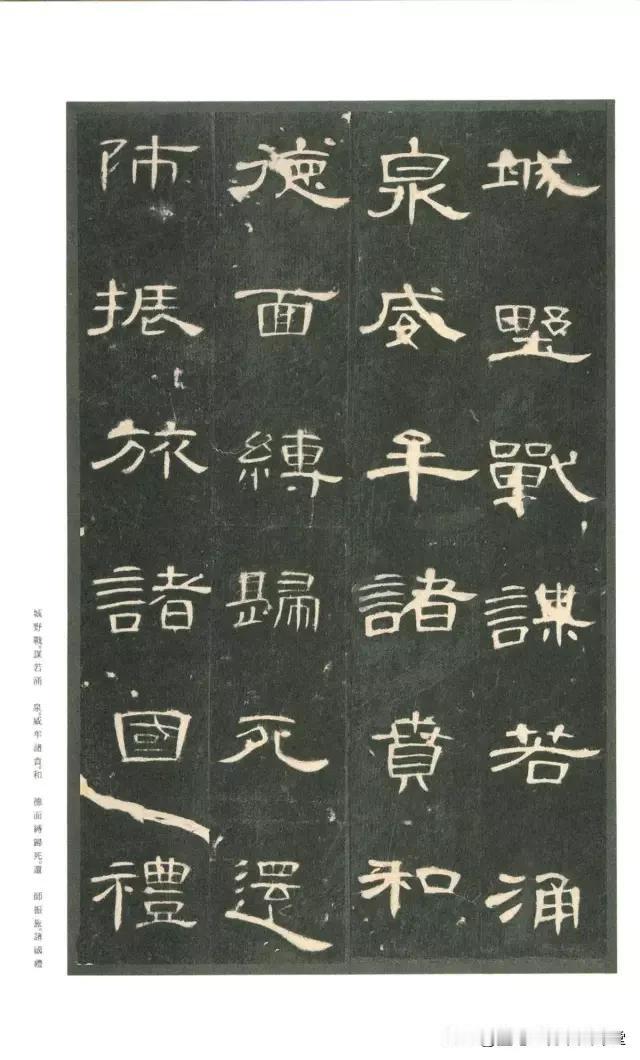 城野戰謀若涌
泉威牟諸賁和
德面縛歸死還
師振旅諸國禮
城野戰。謀若涌 泉。威牟諸賁。和 德面縛歸死。還 師振旅。諸國禮